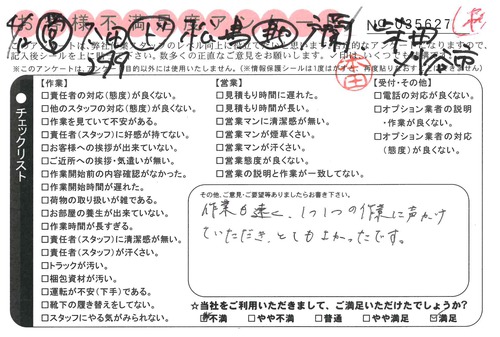 お客様不満足アンケート
No 035627
当アンケートは、弊社作業スタッフのレベル向上に役立てたいと思います
記入後シールを上にお貼り下さい。数多くの正直なご意見をお願いします。
※このアンケートは、アンケート目的以外には使用いたしません。
チェックリスト
【作業】
□責任者の対応(態度)が良くない。
□他のスタッフの対応(態度)が良くない。
□作業を見ていて不安がある。
□責任者(スタッフ)に好感が持てない。
□お客様への挨拶が出来ていない。
□ご近所への挨拶・気遣いが無い。
□作業開始前の内容確認がなかった。
□作業開始時間が遅れた。
□荷物の取り扱いが雑である。
□お部屋の養生が出来ていない。
□作業時間が長すぎる。
□責任者(スタッフ)に清潔感が無い。
□責任者(スタッフ)が汗くさい。
□トラックが汚い。
□梱包資材が汚い。
□運転が不安(下手)である。
□靴下の履き替えをしてない。
□スタッフにやる気がみられない。
【営業】
□見積もり時間に遅れた。
□見積もり時間が長い。
□営業マンに清潔感が無い。
□営業マンが煙草くさい。
□営業マンが汗くさい。
□営業態度が良くない。
□営業の説明と作業が一致してない。
【受付・その他】
□電話の対応が良くない。
□オプション業者の説明
・作業が良くない。
□オプション業者の対応
(態度)が良くない。
その他、ご意見・ご要望等ありましたらお書き下さい。
作業も速く、1つ1つの作業に声かけ
ていただき、とてもよかったです。
☆当社をご利用いただきまして、ご満足いただけたでしょうか?
□不満 □やや不満 □普通 □やや満足 ☑満足